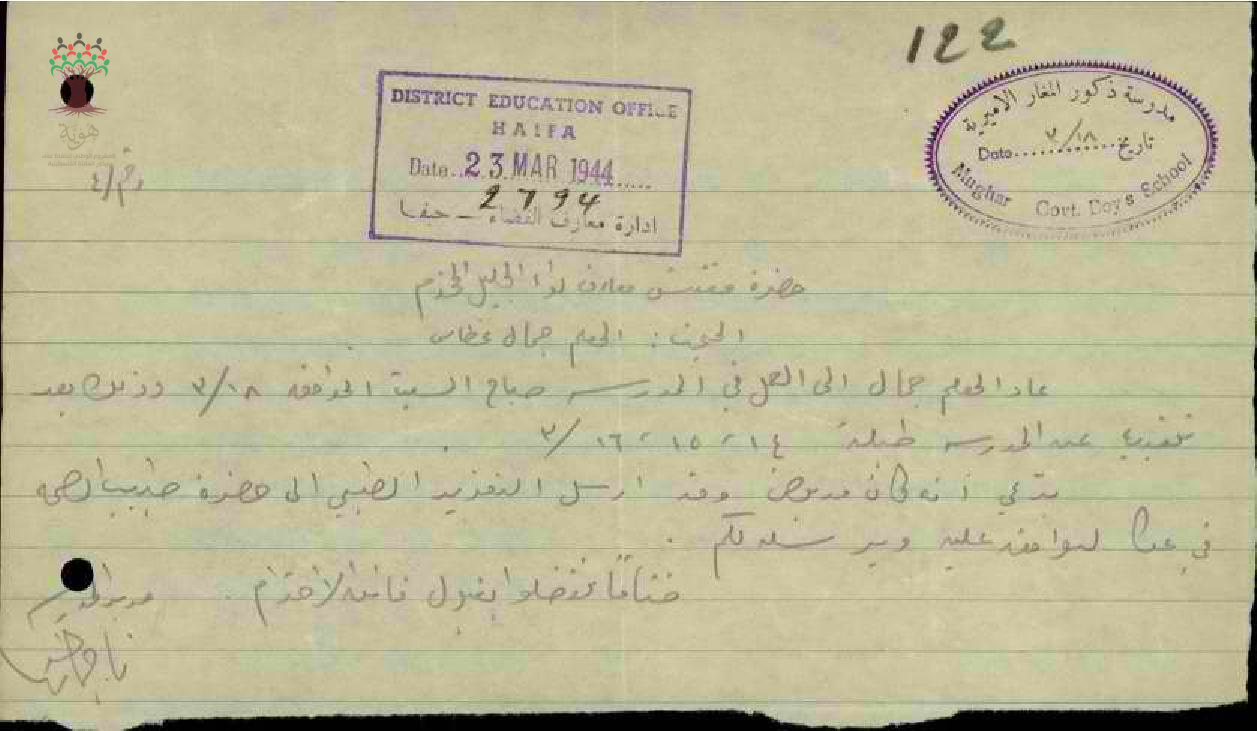 122
هوية
رقم /٤
DISTRICT EDUCATION OFFICE
HAIFA
Date..23 MAR 1944......
2794
ادارة معارف القضاء - حيفا
مدرسة ذكور المغار الاميرية
تاريخ ............ Date
٣/١٨
Mughar Govt. Boy's School
حضرة مفتش معارف لواء الجليل المحترم
المبحث : المعلم جمال غطاس
عاد المعلم جمال الى العمل في المدرسه صباح السبت الموافق ١٨/٣ وذلك بعد
تغيبه عن المدرسه طيلة ١٤، ١٥، ١٦/٣ .
يدعي أنه كان مريض وقد ارسل التقرير الطبي الى حضرة طبيب الصحه
في عكا ليوافق عليه ويرسله لكم .
ختاماً تفضلوا بقبول فائق الاحترام .
مدير المدرسه